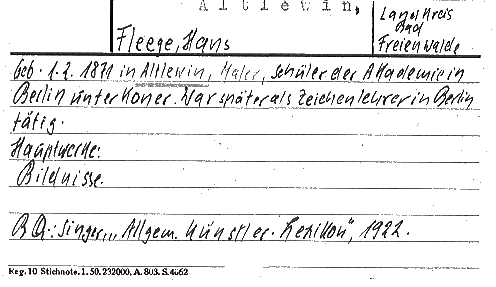 Altlewin,
Landkreis
Bad
Freienwalde
Fleege, Hans
Geb. 1.2. 1871 in Altlewin, Maler, Schüler der Akademie in
Berlin unter Koner. War später als Zeichenlehrer in Berlin
tätig.
Hauptwerke:
Bildnisse.
BQ.: Singer,, Allgem. Künstler-Lexikon", 1922.
Reg. 10 Stichnote. 1. 50. 232000, A. 803. S. 4662